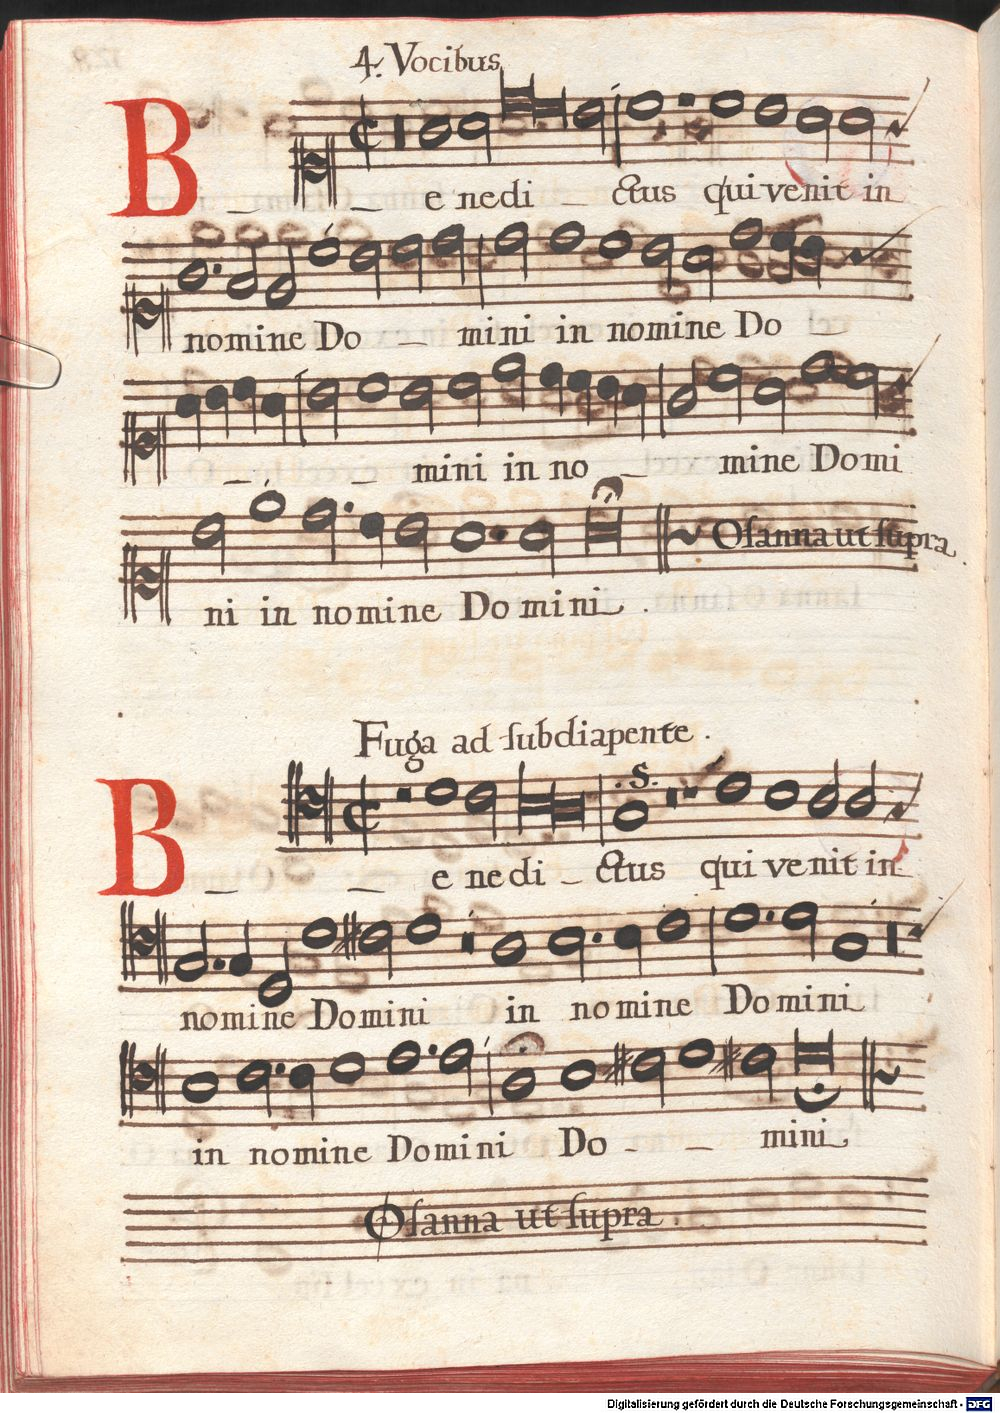 4. Vocibus
B _ _ e nedi _ ctus qui venit in
nomine Do _ mini in nomine Do
_ _ mini in no _ mine Domi
ni in nomine Domini .
Osanna ut supra .
Fuga ad subdiapente .
.S.
B _ _ e nedi _ ctus qui venit in
nomine Domini in nomine Domini
in nomine Domini Do _ _ mini
Osanna ut supra .
Digitalisierung gefördert durch die Deutsche Forschungsgemeinschaft - DFG